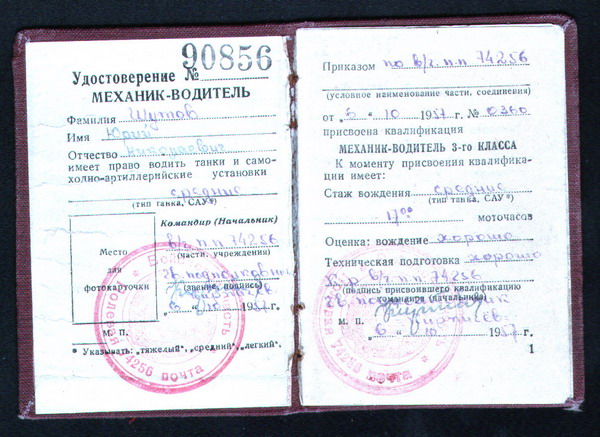 90856
Удостоверение №
МЕХАНИК-ВОДИТЕЛЬ
Фамилия Шутов
Имя Юрий
Отчество Николаевич
имеет право водить танки и само-
ходно-артиллерийские установки
средние
(тип танка, САУ*)
Командир (Начальник)
в/ч п.п 74256
(части, учреждения)
гв. подполковник
(звание, подпись)
"6" 10 1957 г.
Место
для
фотокарточки
М. П.
* Указывать: „тяжелый“, „средний“, „легкий“.
74256 почта
Приказом по в/ч. п.п 74256
(условное наименование части, соединения)
от „5“ 10 1957 г. № 0360
присвоена квалификация
МЕХАНИК-ВОДИТЕЛЬ 3-го КЛАССА
К моменту присвоения квалифика-
ции имеет:
Стаж вождения средние
(тип танка, САУ*)
моточасов
Оценка: вождение хорошо
Техническая подготовка хорошо
К-р в/ч. п.п. 74256
(подпись присвоившего квалификацию
командира (начальника)
М. П.
„6“ 10 1957 г.
74256 почта
1